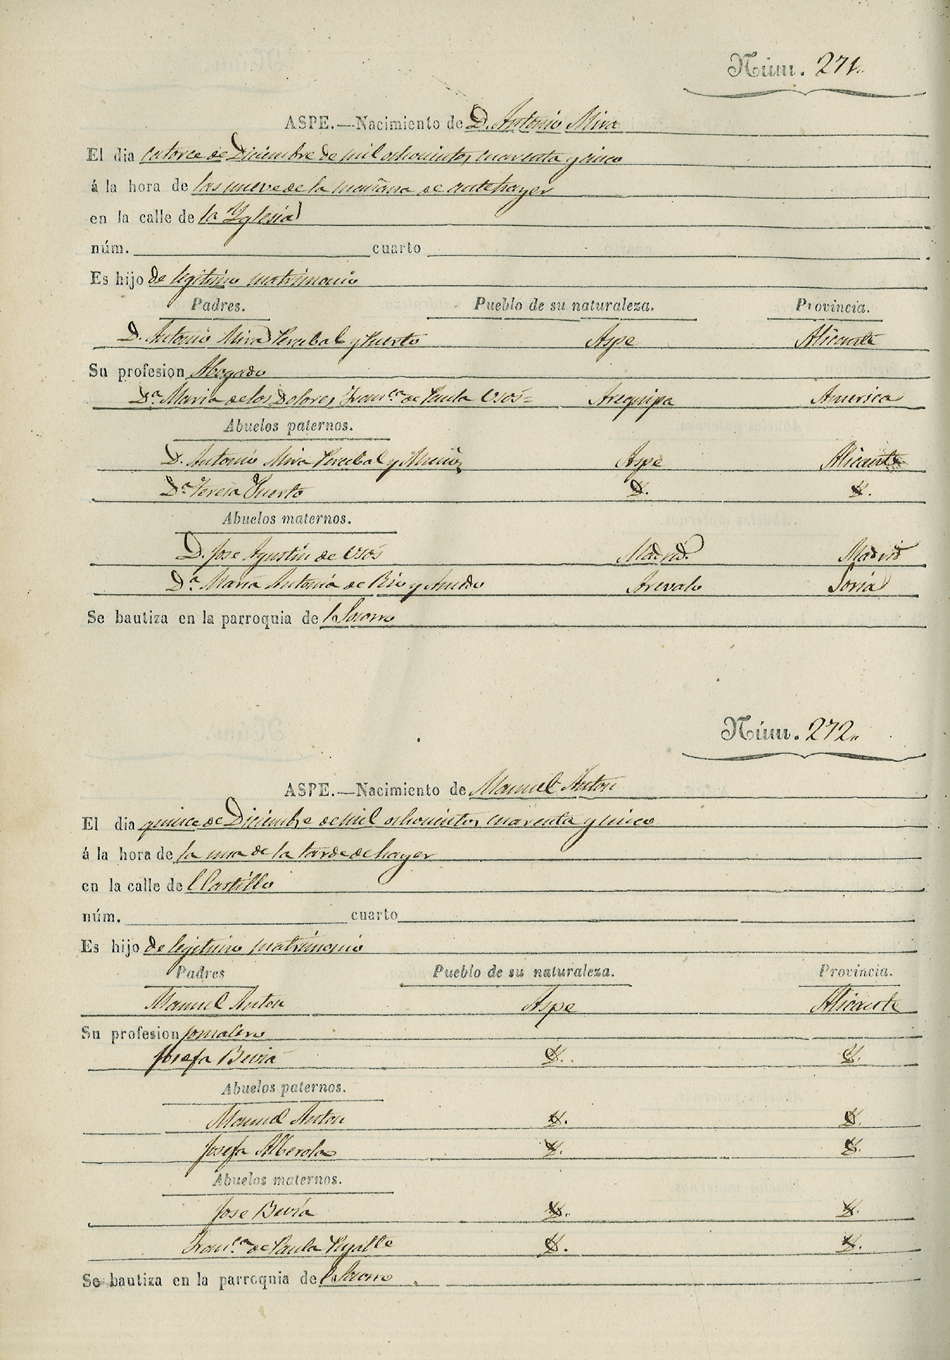 Núm. 271.
ASPE.—Nacimiento de D. Antonio Mira
El dia catorce de Diciembre de mil ochocientos cuarenta y cinco
á la hora de las nueve de la mañana de antehayer
en la calle de la Yglesia
núm. cuarto
Es hijo de legitimo matrimonio
Padres. Pueblo de su naturaleza. Provincia.
D. Antonio Mira Percebal y Puerto Aspe Alicante
Su profesion Abogado
Dª Maria de los Dolores, Franca de Paula Osós= Arequipa America
Abuelos paternos.
D. Antonio Mira Percebal y Muñoz Aspe Alicante
Dª Teresa Puerto Y. Y.
Abuelos maternos.
D. Jose Agustin de Osós Madrid Madrid
Dª Maria Antonia de Rio y Arevalo Soria
Se bautiza en la parroquia de l Socorro
Núm. 272.
ASPE.—Nacimiento de Manuel Anton
El dia quince de Diciembre de mil ochocientos cuarenta y cinco
á la hora de la una de la tarde de hayer
en la calle de l Castillo
núm. cuarto
Es hijo de legitimo matrimonio
Padres Pueblo de su naturaleza. Provincia.
Manuel Anton Aspe Alicante
Su profesion jornalero
Josefa Bevia Y. Y.
Abuelos paternos.
Manuel Anton Y. Y.
Josefa Alberola Y. Y.
Abuelos maternos.
Jose Bevia Y. Y.
Franca de Paula Y. Y.
Se bautiza en la parroquia de l Socorro